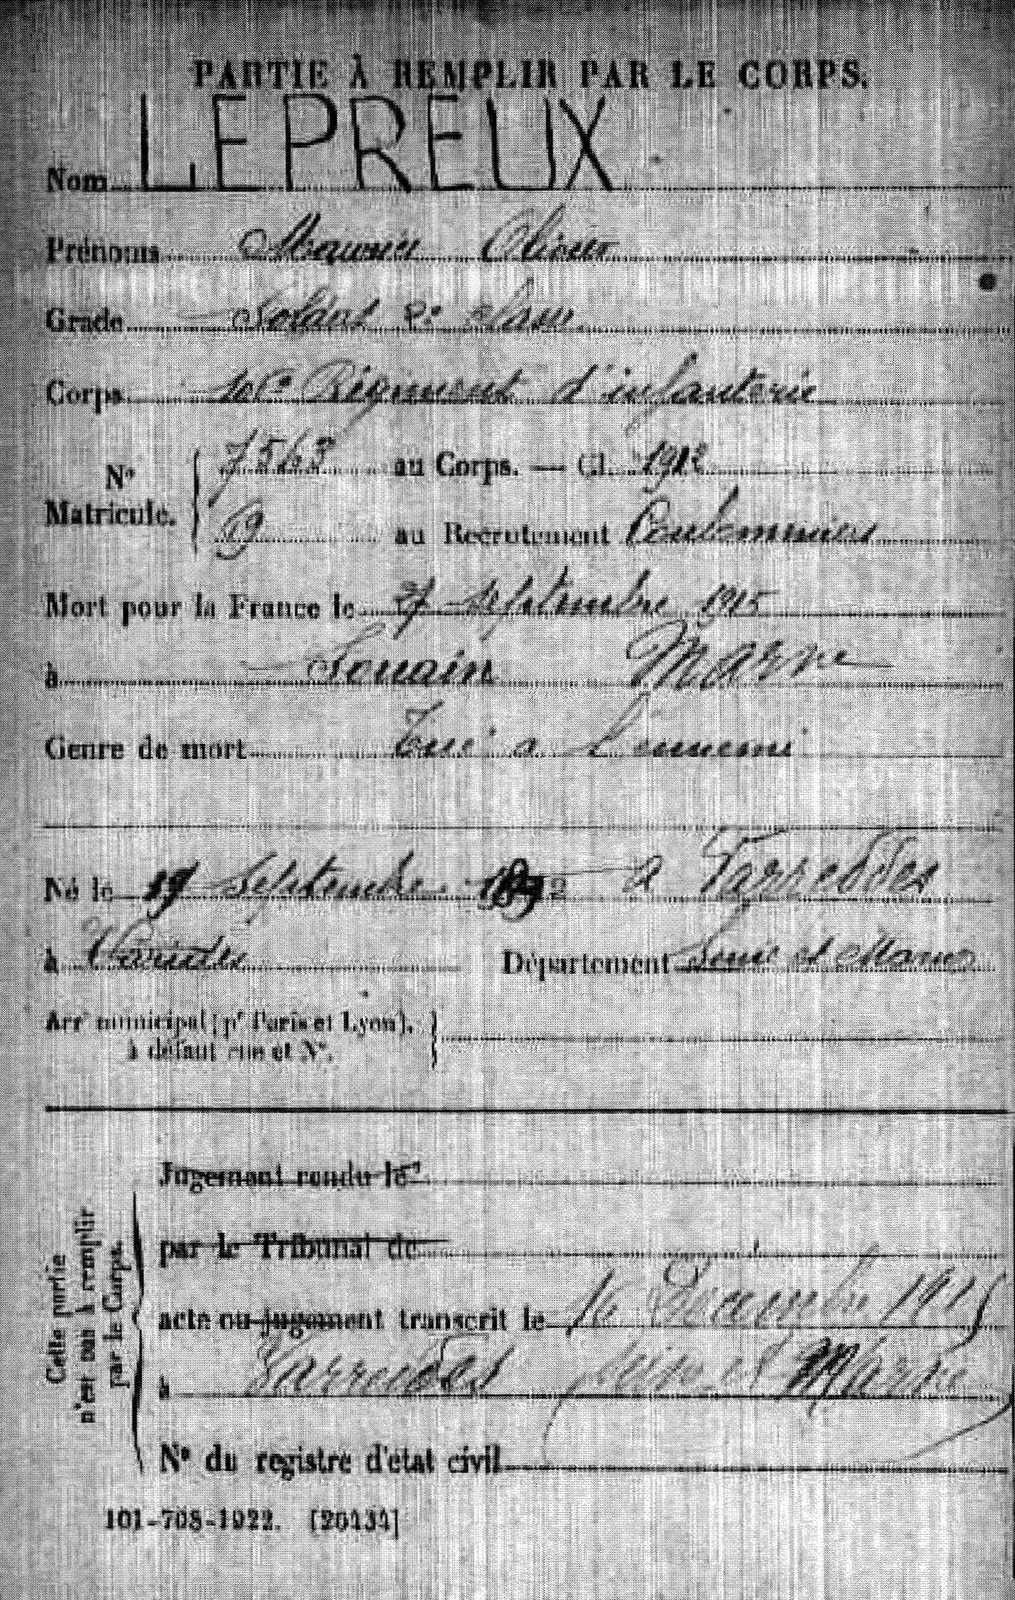 PARTIE À REMPLIR PAR LE CORPS.
Nom LEPREUX
Prénoms Maurice Olivier
Grade Soldat 2e classe
Corps Régiment d'infanterie
No Matricule. 7543 au Corps. — Cl. 1912
19 au Recrutement Coulommiers
Mort pour la France le 27 septembre 1915
à Souain Marne
Genre de mort Tué à l'ennemi
Né le 19 Septembre 1892 à Varreddes
à Département Seine et Marne
Arrt municipal (pr Paris et Lyon),
à défaut rue et No.
Cette partie n'est pas à remplir par le Corps.
Jugement rendu le
par le Tribunal de
acte ou jugement transcrit le 16 Decembre 1915
à Varreddes Seine et Marne
No du registre d'état civil
101-708-1922. [20434]